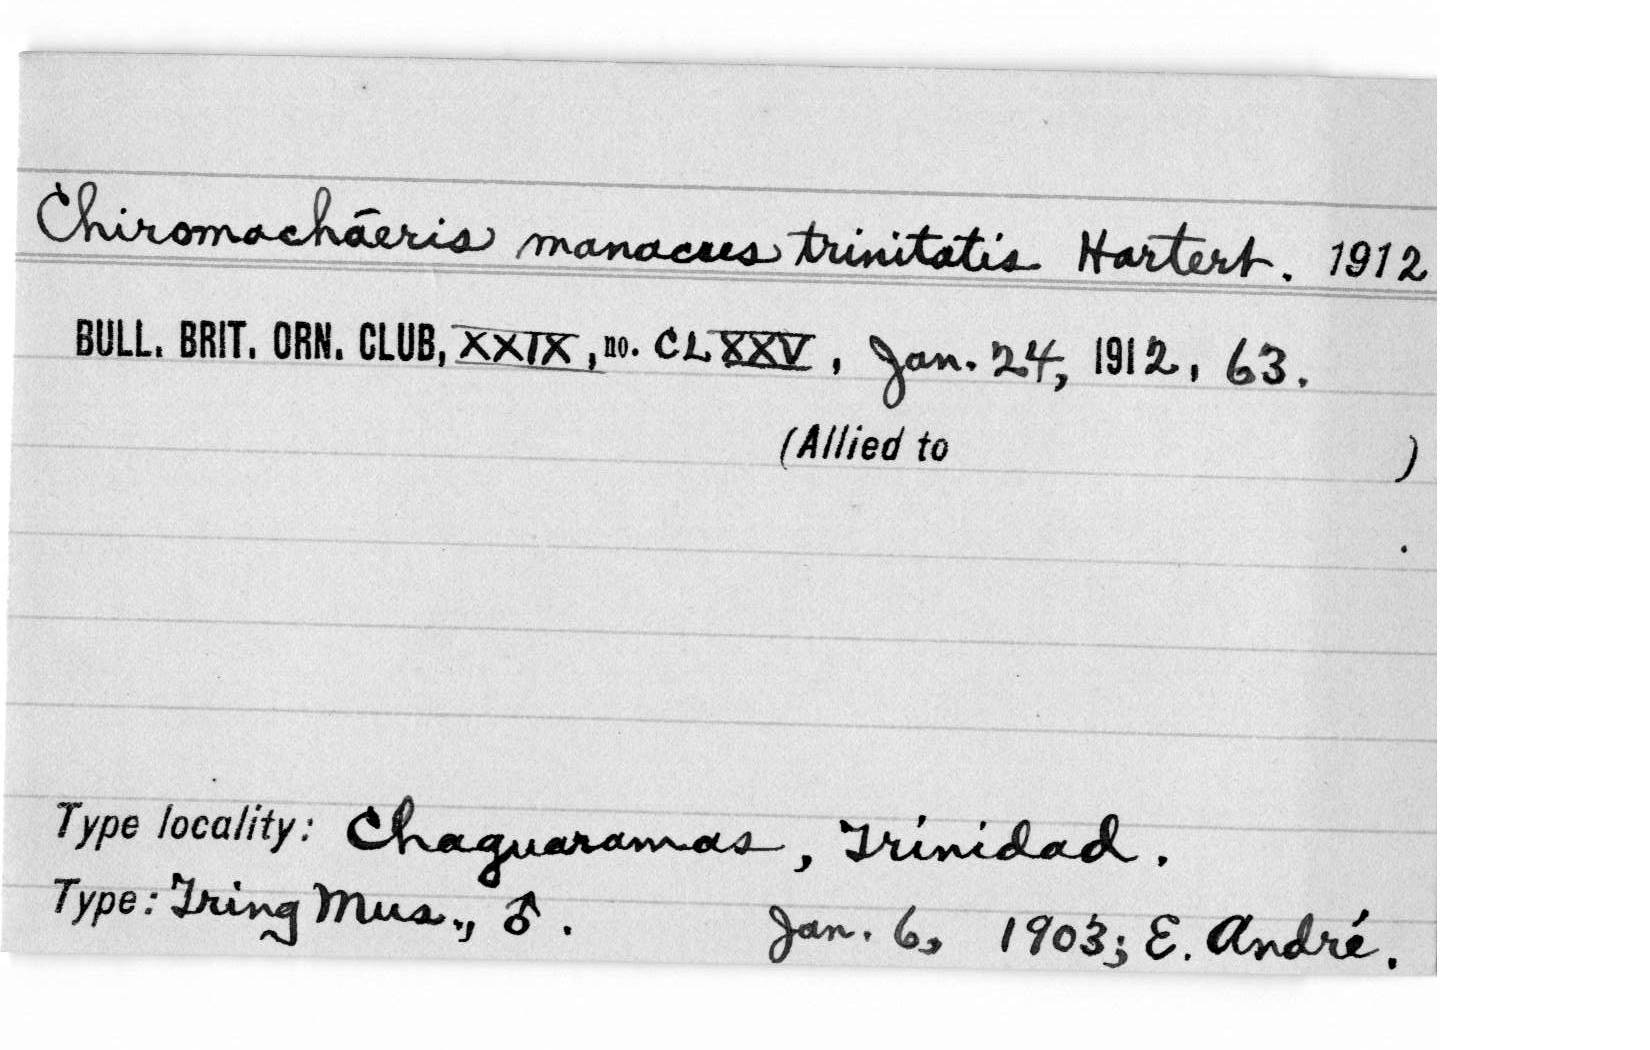 Chiromachaeris manacus trinitatis Hartert. 1912
BULL. BRIT. ORN. CLUB, XXIX, no. CLXXV, Jan. 24, 1912, 63.
(Allied to )
.
Type locality: Chaguaramas, Trinidad.
Type: Tring Mus., ♂. Jan. 6, 1903; E. André.